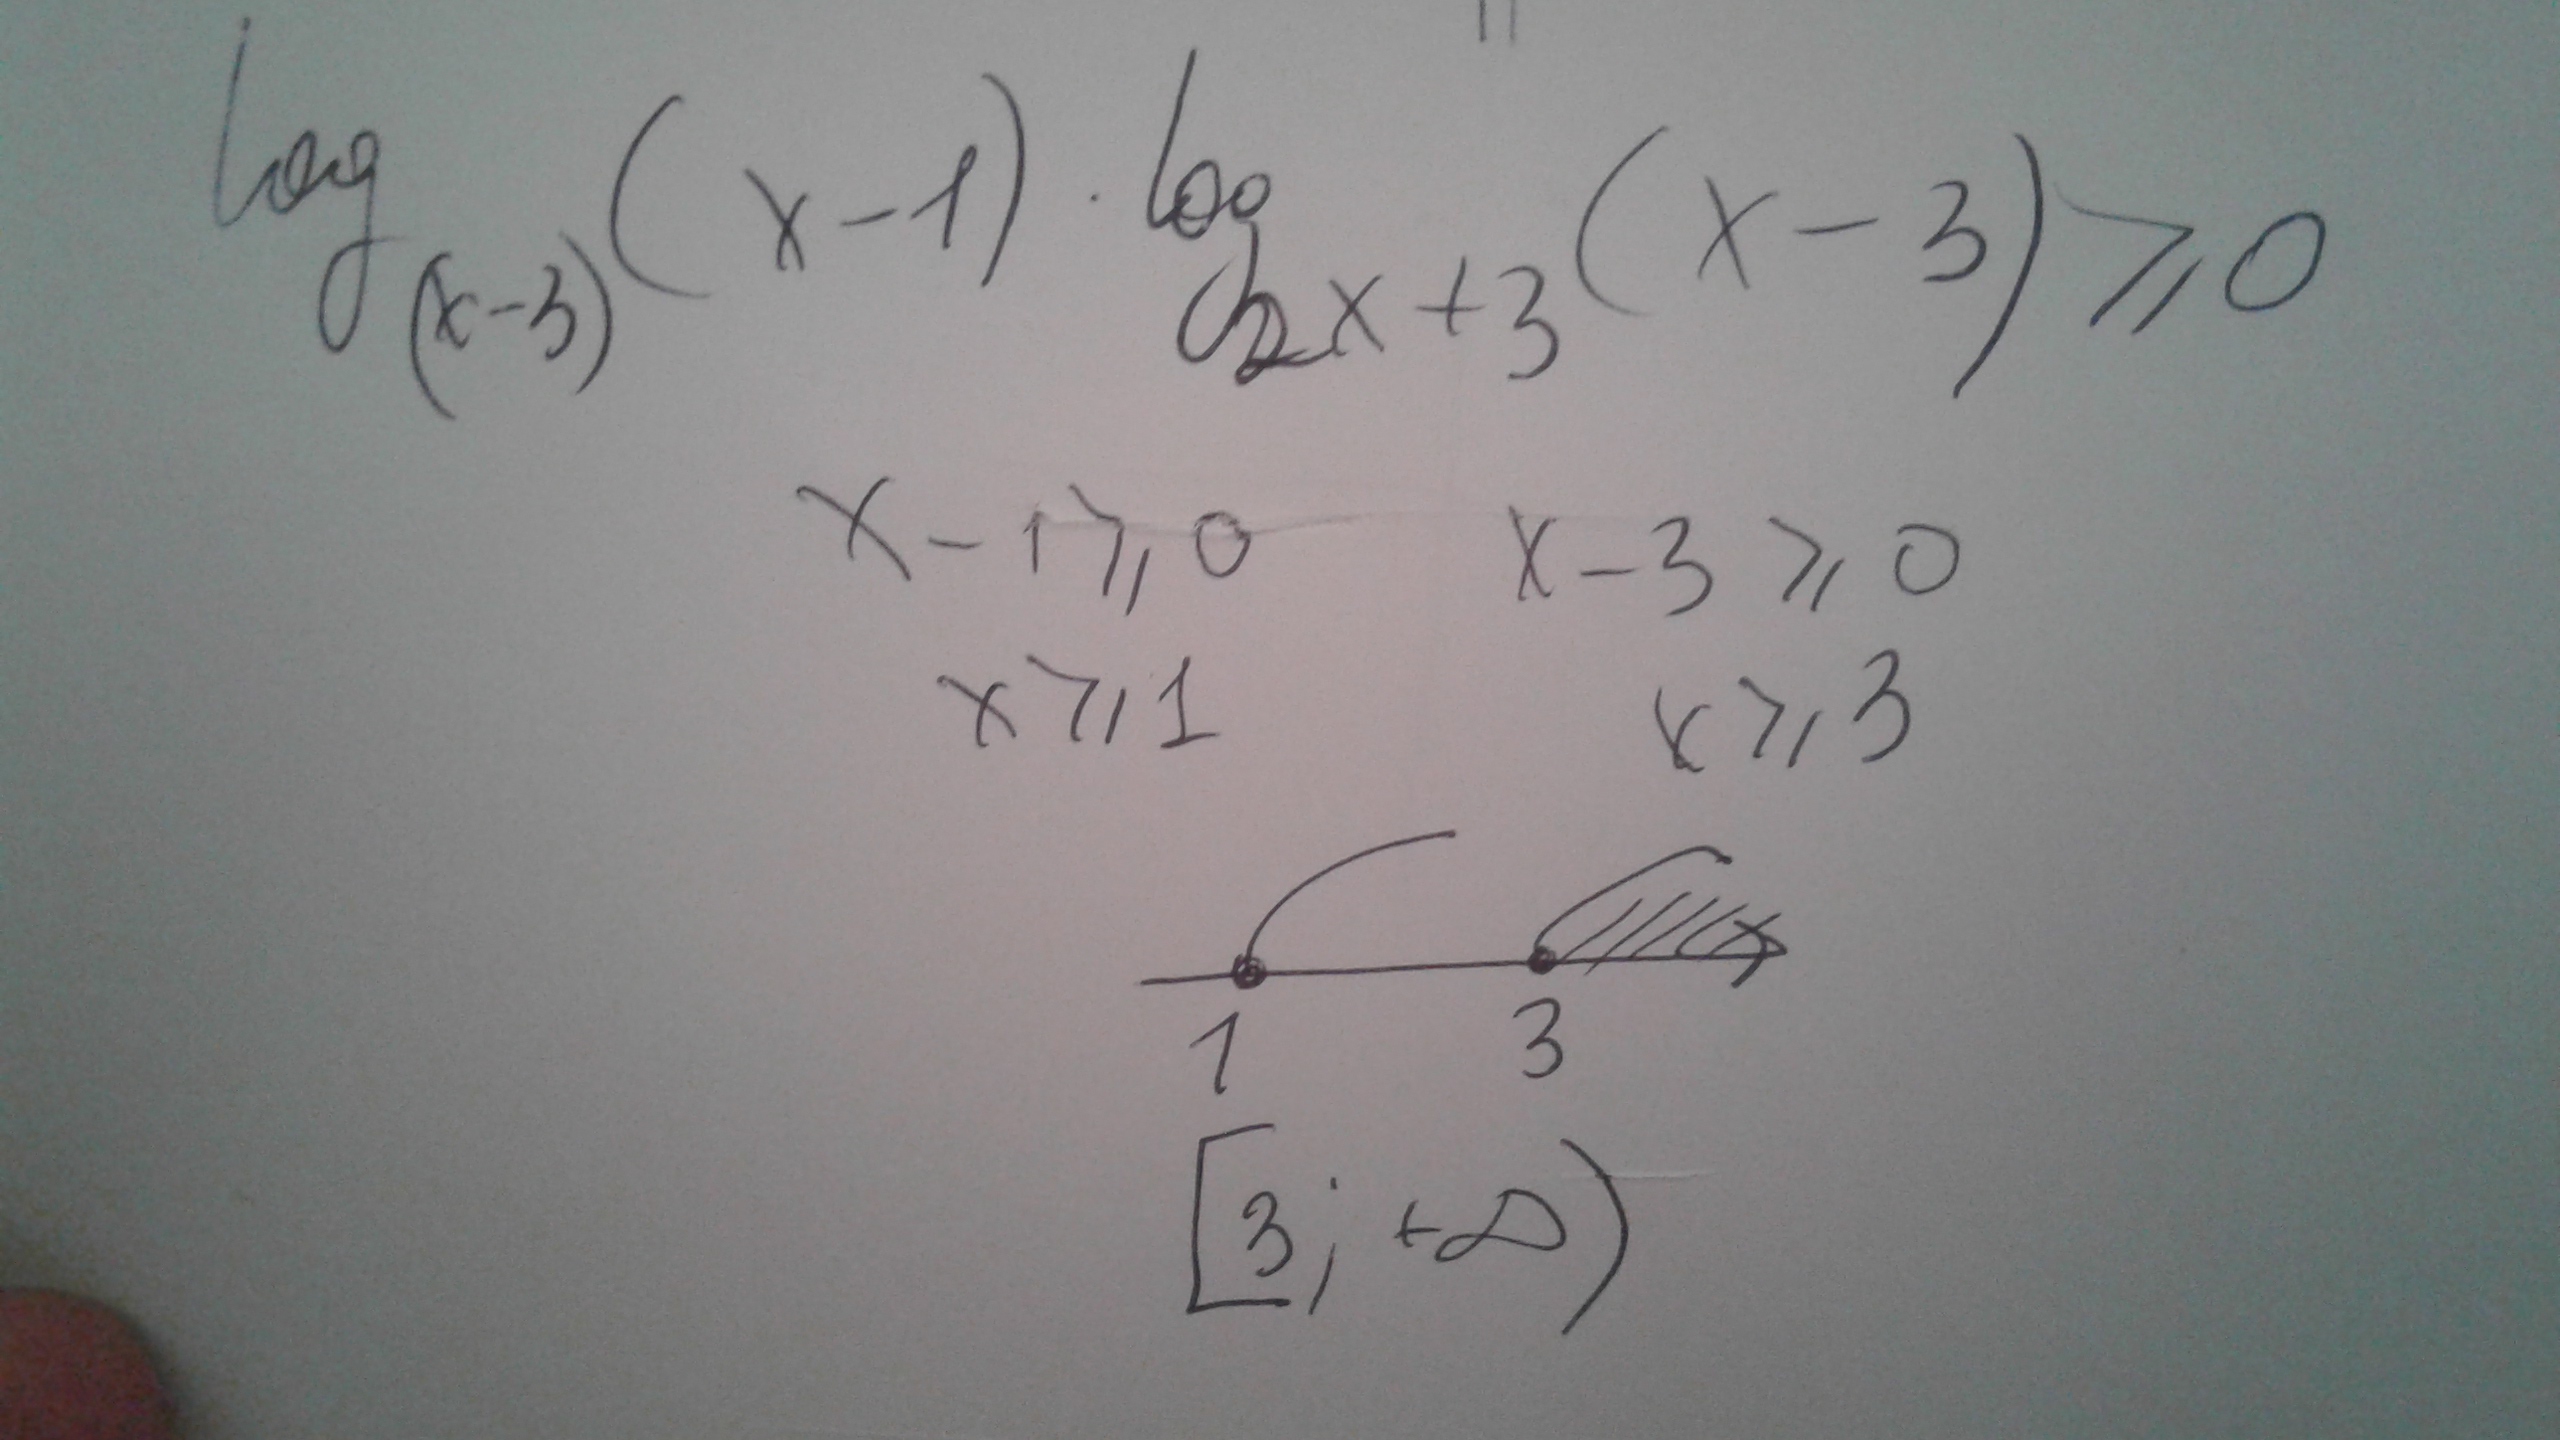 log_(x-3) (x-1) · log_2x+3 (x-3) ⩾ 0
x-1⩾0 x-3⩾0
x⩾1 x⩾3
1 3
[3; +∞)